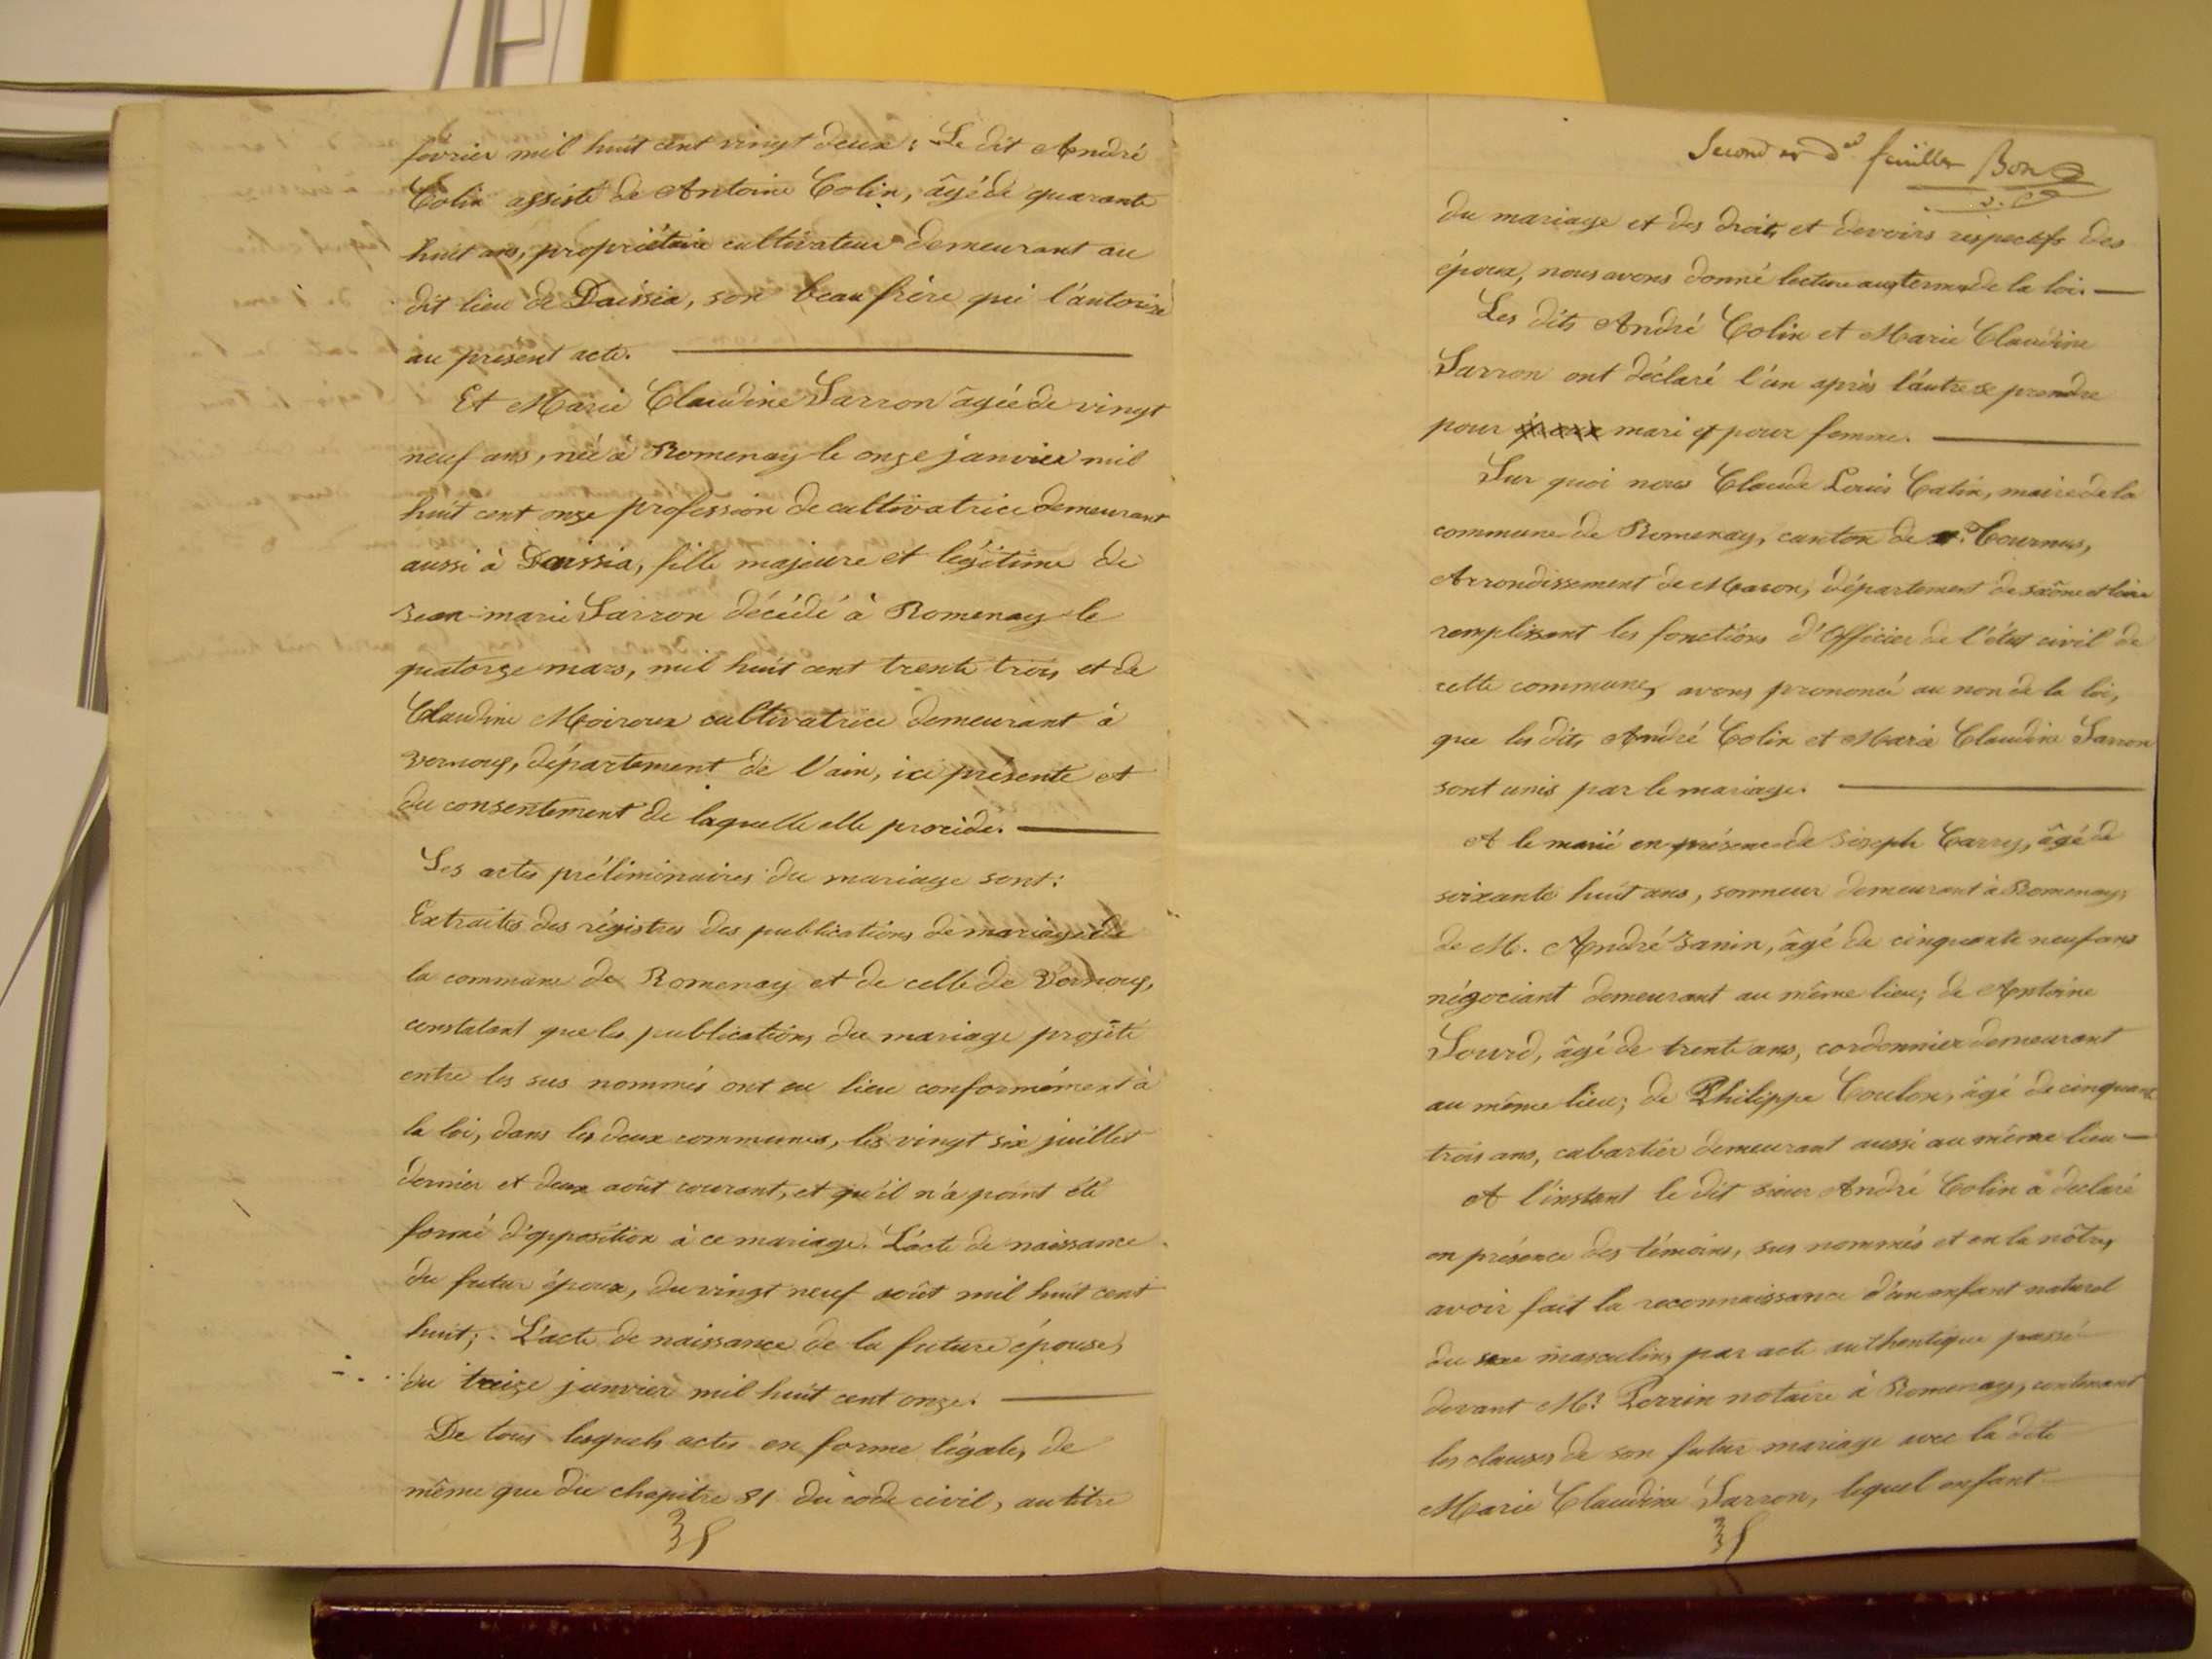 février mil huit cent vingt deux : Le dit André
Colin assisté de Antoine Colin, âgé de quarante
huit ans, propriétaire cultivateur demeurant au
dit lieu de Daissia, son beau frère qui l'autorise
au présent acte.
Et Marie Claudine Sarron âgée de vingt
neuf ans, née à Romenay le onze janvier mil
huit cent onze profession de cultivatrice demeurant
aussi à Daissia, fille majeure et légitime de
Jean-marie Sarron décédé à Romenay le
quatorze mars, mil huit cent trente trois et de
Claudine Moiroux cultivatrice demeurant à
Vernoux, département de l'ain, ici présente et
du consentement de laquelle elle procède.
Les actes préliminaires du mariage sont :
Extraites des régistres des publications de mariage de
la commune de Romenay et de celle de Vernoux,
constatant que les publications du mariage projété
entre les sus nommés ont eu lieu conformément à
la loi, dans les deux communes, les vingt six juillet
dernier et deux août courant, et qu'il n'a point été
formé d'opposition à ce mariage. L'acte de naissance
du futur époux, du vingt neuf août mil huit cent
huit ; L'acte de naissance de la future épouse,
du treize janvier mil huit cent onze.
De tous lesquels actes en forme légale, de
même que du chapitre 81 du code civil, au titre
Second et feuillet Bon
du mariage et des droits et devoirs respectifs des
époux, nous avons donné lecture aux termes de la loi.
Les dits André Colin et Marie Claudine
Sarron ont déclaré l'un après l'autre se prendre
pour mari et pour femme.
Sur quoi nous Claude Louis Catin, maire de la
commune de Romenay, canton de Tournus,
Arrondissement de Macon, département de saône et loire
remplissant les fonctions d'Officier de l'état civil de
cette commune, avons prononcé au non de la loi,
que les dits André Colin et Marie Claudine Sarron
sont unis par le mariage.
et le marié en présence de Joseph Carry, âgé de
soixante huit ans, sonneur demeurant à Romenay,
de M. André Janin, âgé de cinquante neuf ans
négociant demeurant au même lieu ; de Antoine
Sourd, âgé de trente ans, cordonnier demeurant
au même lieu ; de Philippe Coulon, âgé de cinquante
trois ans, cabartier demeurant aussi au même lieu
et l'instant le dit sieur André Colin a declaré
en présence des témoins, sus nommés et en la nôtre,
avoir fait la reconnaissance d'un enfant naturel
du sexe masculin, par acte authentique passé
devant Mr. Perrin notaire à Romenay, contenant
les clauses de son futur mariage avec la dite
Marie Claudine Sarron, lequel enfant